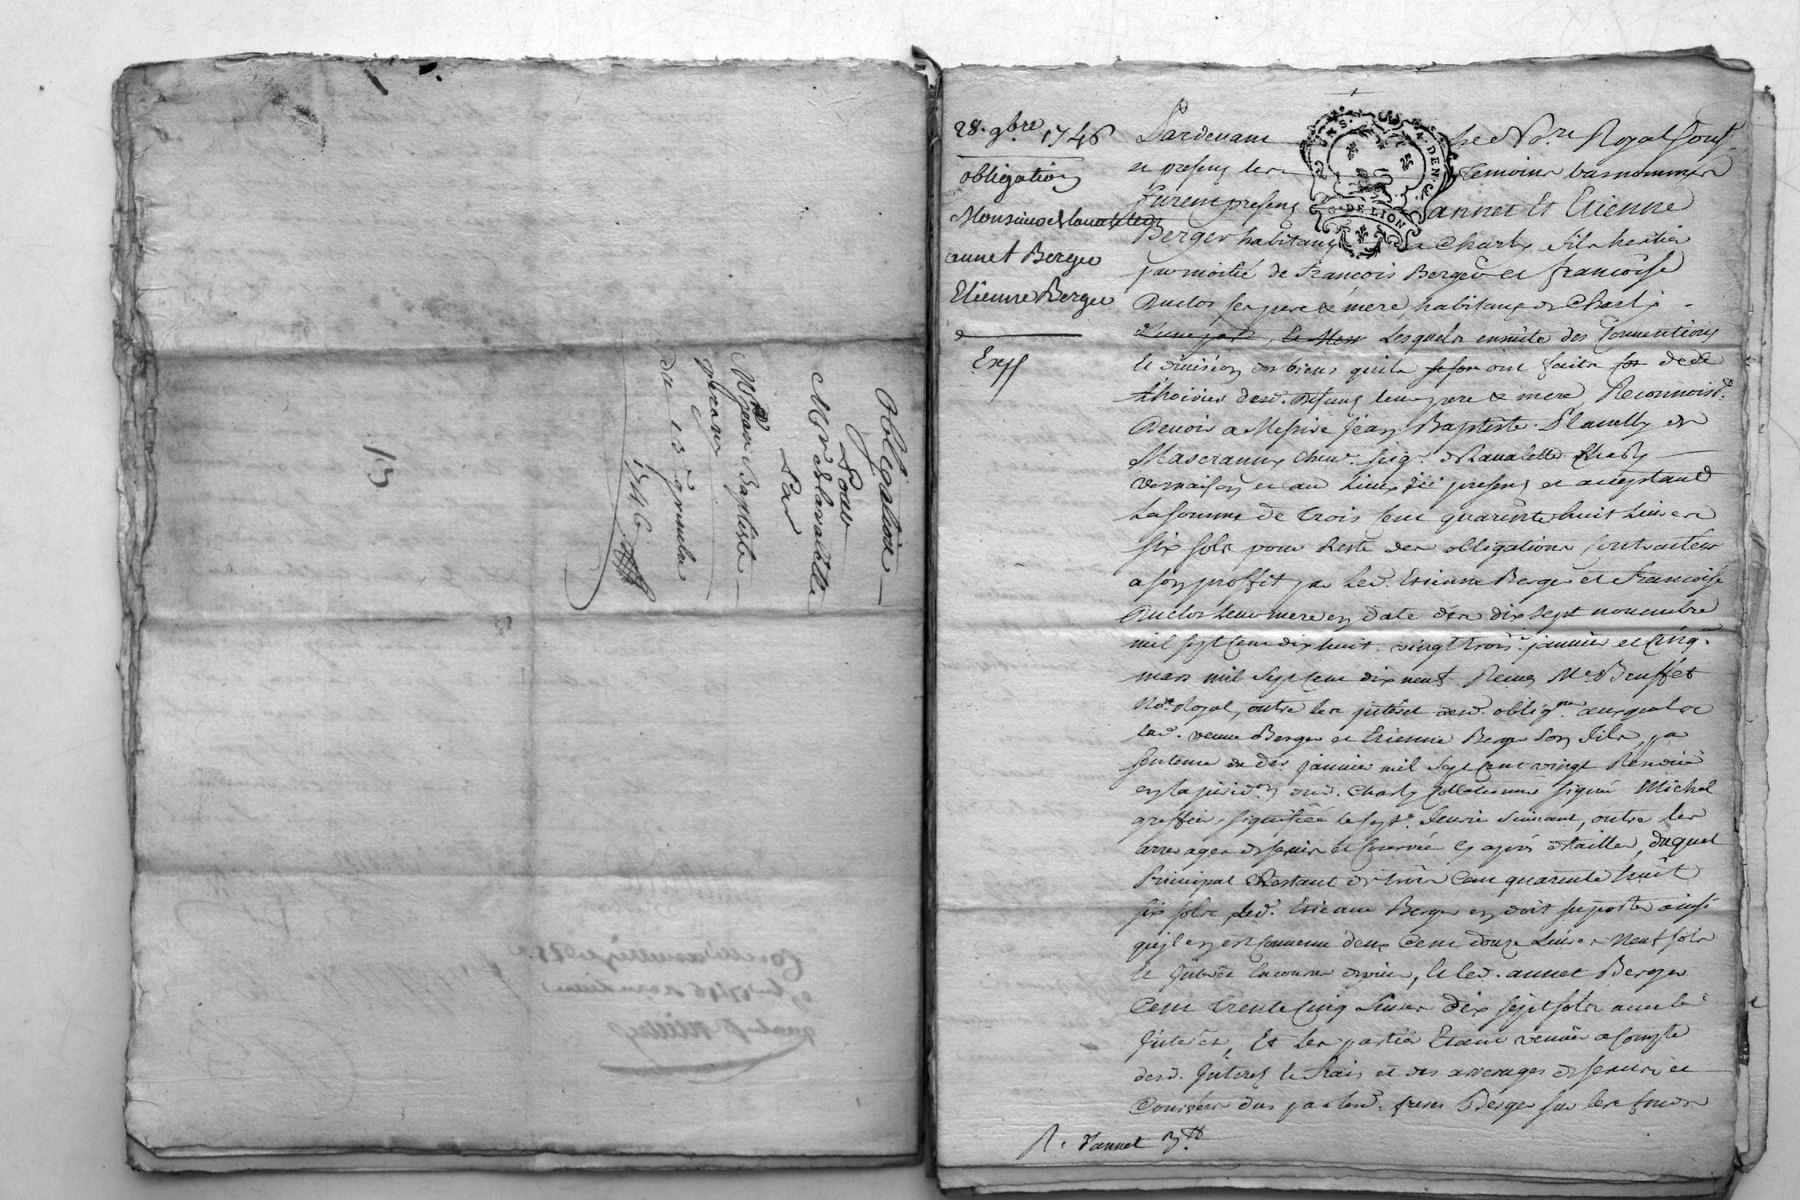 Obligation
Pour
Mr De Lavalette
Par
Mre Jean Baptiste
du 15 9embre
1746
15
28. 9bre 1746
obligation
Monsieur De Lavalette
annet Berger
Etienne Berger
Exp
Pardevant le No.re Royal sous.
et presens les temoins bas nommés
furent presens annet Et Etienne
Berger habitans a Charly fils heritier
par moitié de francois Berger et francoise
Duclos ses pere & mere, habitans de Charly
Lesquels ensuite des Conventions
le division des biens quils ont faits de de
l'hoirie desd. defuns leur pere & mere, Reconnoiss.
Devoir a Messire Jean Baptiste
Mascranny chev. seig. de Lavalette Charly
vernaison et au Lieux ici present et acceptant
La somme de trois cent quarente huit Livres
six sols pour Reste des obligations contractées
a son proffit par Led. Etienne Berger et francoise
Duclos Leur mere en date des dix sept novembre
mil sept cent dix huit, vingt trois janvier et cinq
mars mil sept cent dix neuf Receu Me Bruffet
No.re Royal, outre les interet desd. oblig.ons auxquels
lad. veuve Berger et Etienne Berger son fils, par
sentence du dix janvier mil sept cent vingt Rendüe
en la jurid.on dud. Charly Collationné signé Michel
greffier, signifiée le sept.e fevrier suivant, outre les
arrerages de servis et Corvée duquel
Principal Restant de trois Cent quarente huit
six sols, Led. Etienne Berger en doit suporter ainsi
qu'il en est convenu deux Cent douze Livres Neuf sols
le interet encourus et Led. annet Berger
Cent trente Cinq Livres dix sept sols avec les
interets, Et les parties Etant venües a Compte
desd. interets le frais et des arrerages de servis et
Courvées dus par lesd. freres Berger sur les fonds
R. d'annet 3.tt